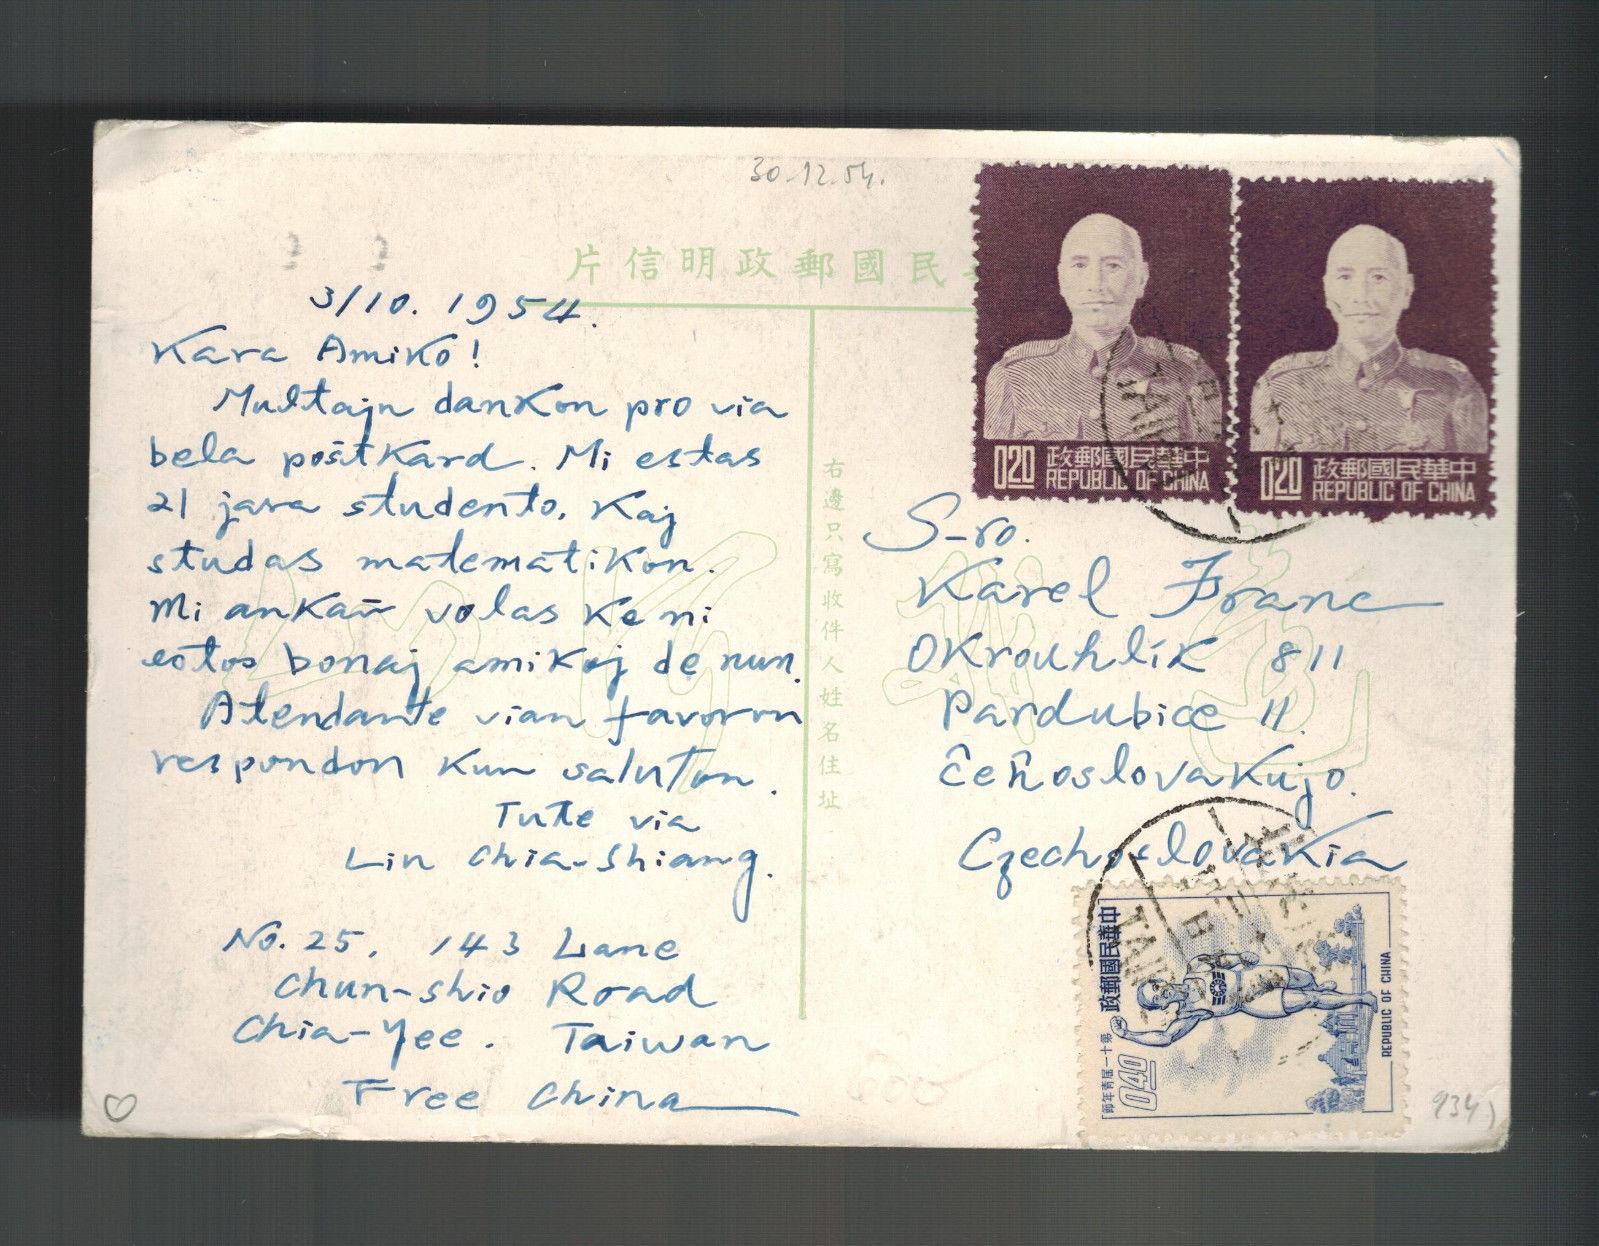 30.12.54.
片信明政郵國民
3/10. 1954.
Kara Amiko!
Multajn dankon pro via
bela poŝtkard. Mi estas
21 jara studento, Kaj
studas matematikon.
Mi ankaŭ volas ke ni
estos bonaj amikoj de nun.
Atendante vian favoron
respondon kun saluton.
Tute via
Lin Chia-Shiang.
No. 25, 143 Lane
Chun-shio Road
Chia-Yee. Taiwan
Free China
右邊只寫收件人姓名住址
S-ro.
Karel Franc
Okrouhlík 811
Pardubice 11.
Ĉeĥoslovakujo.
Czechoslovakia
0.20 政郵國民華中
REPUBLIC OF CHINA
0.20 政郵國民華中
REPUBLIC OF CHINA
TAIW
政郵國民華中
第十一屆青年節
0.40
REPUBLIC OF CHINA
TAIW
934